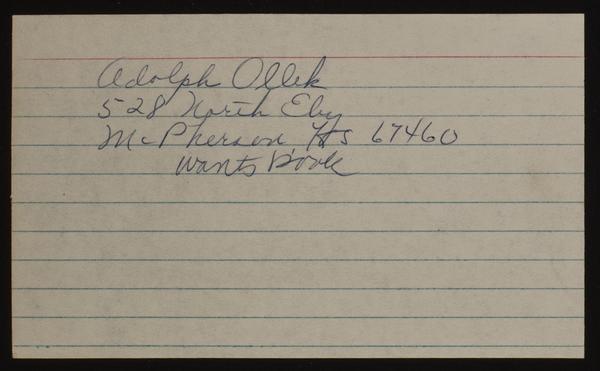 Adolph Ollek
528 North Eby
McPherson, Ks 67460
Wants Book